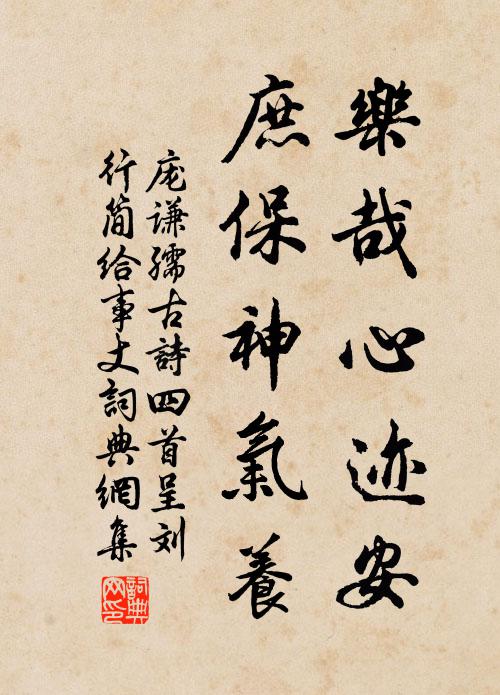 樂哉心迹安
庶保神氣養
庞谦孺古詩四首呈刘
行简给事丈詞典網集
詞典
网印